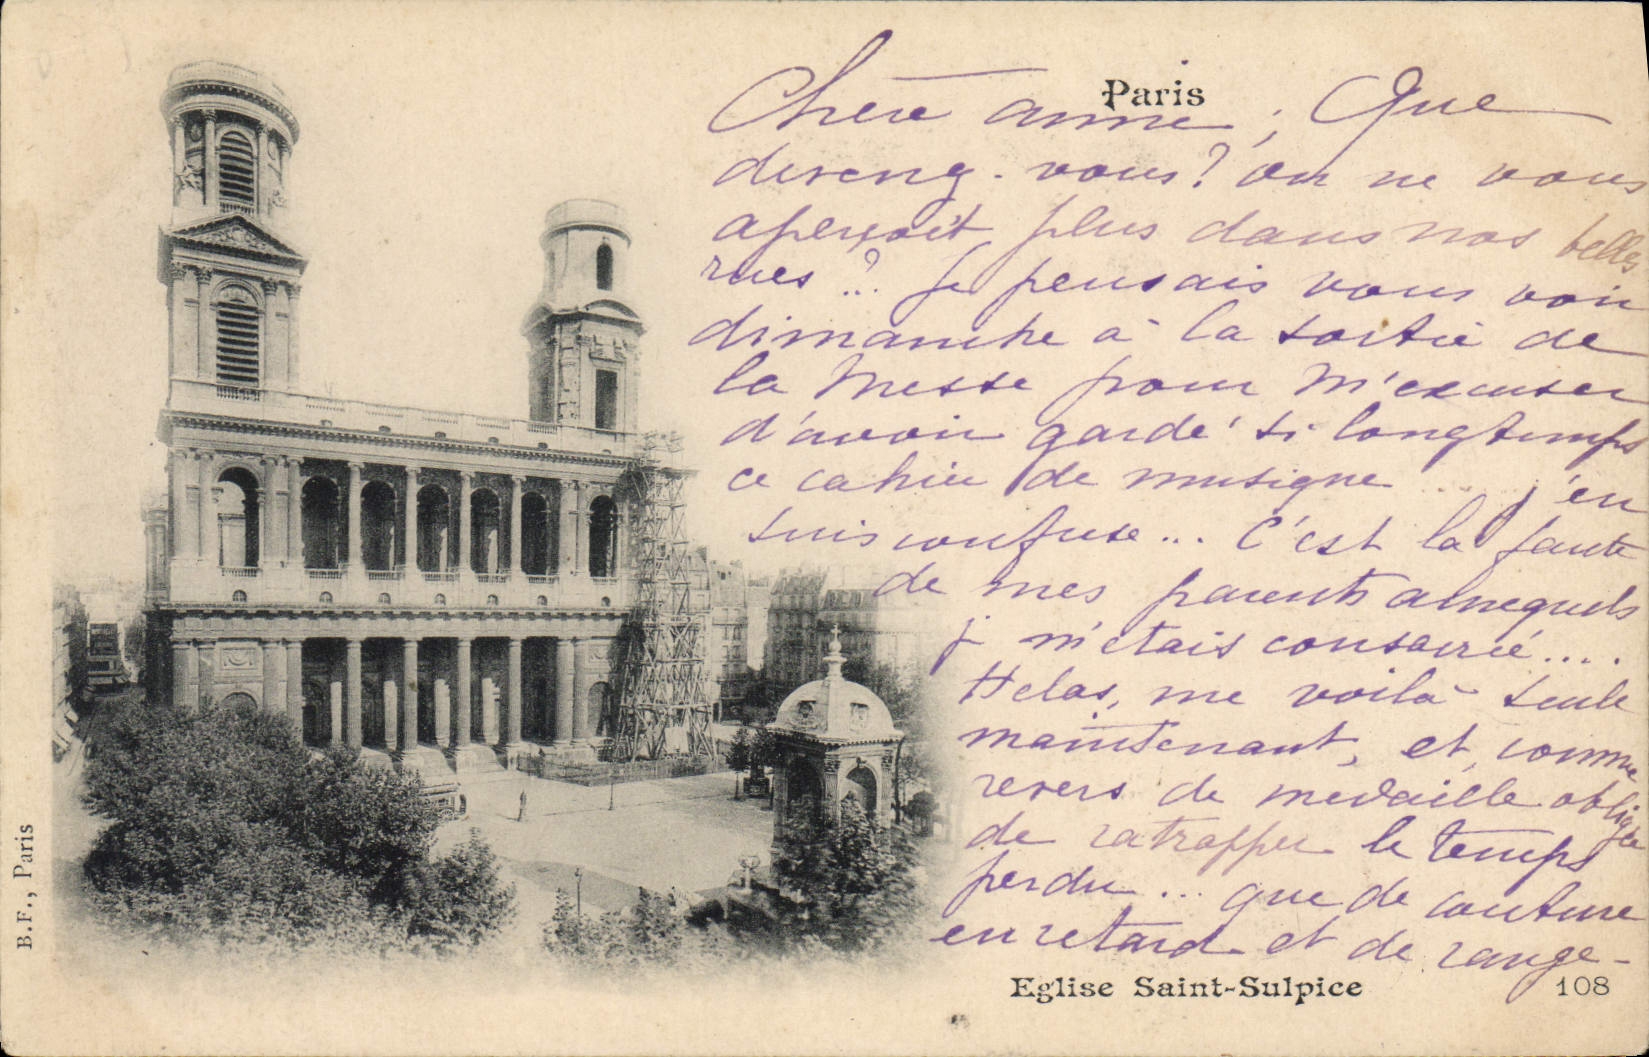 Paris
Chère amie, Que
devenez-vous? On ne vous
aperçoit plus dans nos belles
rues..? Je pensais vous voir
dimanche à la sortie de
la Messe pour M'excuser
d'avoir gardé si longtemps
ce cahier de musique ... j'en
suis confuse... C'est la faute
de mes parents auxquels
je m'étais consacrée....
Hélas, me voilà seule
maintenant, et, comme
revers de médaille obligée
de ratrapper le temps
perdu ... que de couture
en retard et de range-
Eglise Saint-Sulpice
108
B.F., Paris